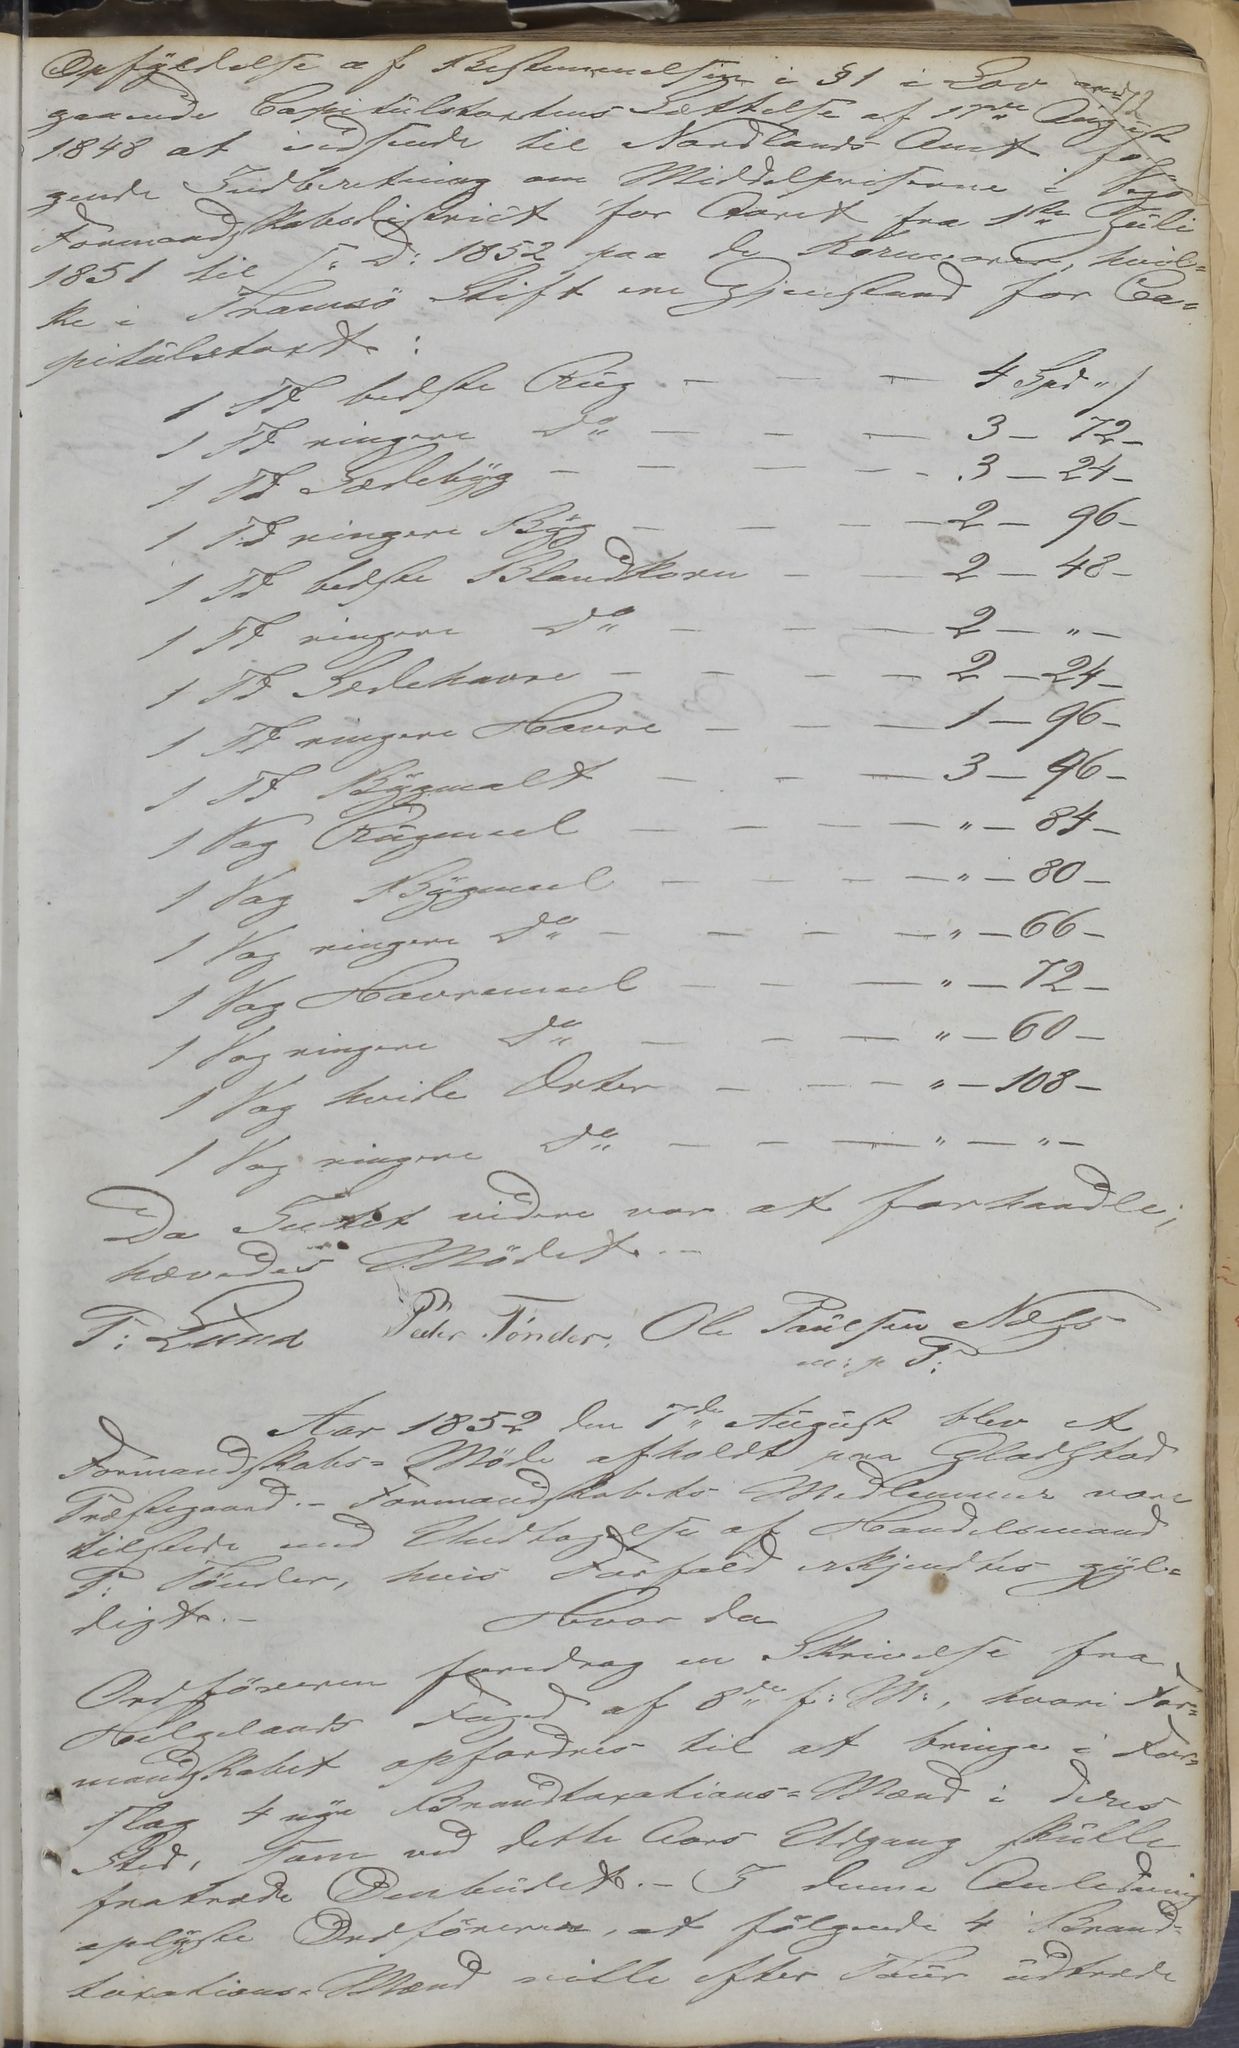 Opfyldelse af Bestemmelsen i §1 i Lov anga=
gaaende Capitelstaxtens Sættelse af 17de August
1848 at indsende til Nordlands Amt føl=
gende Indberetning om Middelpriserne i Vegø
Formandskabsdistrict for Aaret fra 1ste Juli
1851 til s: D: 1852 paa de Kornvarer, hvil=
ke i Tromsø Stift ere Gjenstand for Ca=
pitelstaxt:
1 Td bedste Rug — — — 4 Spd "
1 Td ringere Do — — — 3 — 72 —
1 Td Sædebyg — — — 3 — 24 —
1 Td ringere Byg — — — 2 — 96 —
1 Td bedste Blandkorn — — 2 — 48 —
1 Td ringere Do — — — 2 — " —
1 Td Sædehavre — — — 2 — 24 —
1 Td ringere Havre — — — 1 — 96 —
1 Td Bygmalt — — — 3 — 96 —
1 Vog Rugmeel — — — " — 84 —
1 Vog Bygmeel — — — " — 80 —
1 Vog ringere Do — — — " — 66 —
1 Vog Havremeel — — — " — 72 —
1 Vog ringere Do — — — " — 60 —
1 Vog hvide Erter — — — " — 108 —
1 Vog ringere Do — — — " — " —
Da Intet videre var at forhandle,
hævedes Mødet. —
T: Lund Peder Tønder, Ole Paulsen
m: p P:
Aar 1852 den 7de August blev et
Formandskabs= Møde afholdt paa Gladstad
Præstegaard. — Formandskabets Medlemmer vare
tilstede med Undtagelse af Handelsmand
P: Tønder, hvis Forfald erkjendtes gyl=
digt. — Hvor da
Ordføreren foredrog en Skrivelse fra
Helgelands Foged af 8de f: M:, hvori For=
mandskabet opfordres til at bringe i For=
slag 4 nye Brandtaxations= Mænd i deres
Sted, som ved dette Aars Udgang skulle
fratræde Ombudet. — I denne Anledning
oplyste Ordføreren, at følgende 4 Brand=
taxations= Mænd ville efter Tour udtræde